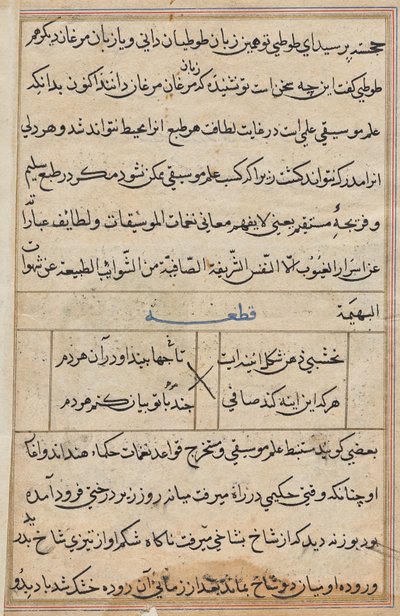 خجسته پرسید ای طوطی تو همین زبان طوطیان دانی و یا زبان مرغان دیگر هم
طوطی گفت این چه سخن است تو نشنیدهٔ که مرغان زبان مرغان دانند اکنون بدانکه
علم موسیقی علمی است در غایت لطافت هر طبع انرا محیط نتواند شد و هر دلی
انرا مدرک نتواند گشت زیرا که کسب علم موسیقی ممکن نشود مگر در طبع سلیم
و قریحهٔ مستقیم یعنی لا یفهم معانی نغمات الموسیقات و لطایف عباراتها
عن اسرار الغیوب الا النفس الشریفة الصافیة من الشوائب الطبیعة عن شهوات
البهیمة
قطعه
نخشبی ذهن شکل ائینه ایست
تا چها بیند او در آن هر دم
هر که این اینه کند صافی
چند با تو بیان کنم هر دم
بعضی گویند مستنبط علم موسیقی و مستخرج قواعد نغمات حکماء هند اند و آفا
او چنانکه وقتی حکیمی در راه میرفت میانه روز زیر درختی فرود آمده
بود بوزنه دید که از شاخ بشاخی میرفت ناکاه شکم او از تیزی شاخ بدرید
و رودهٔ او میان دو شاخ بماند بعد از زمانی آن روده خشک شد باد بدو